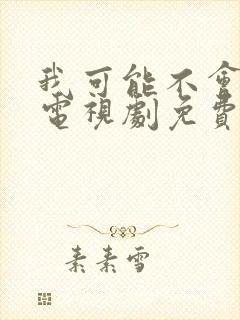 我可能不會
電視劇免費
素素雪